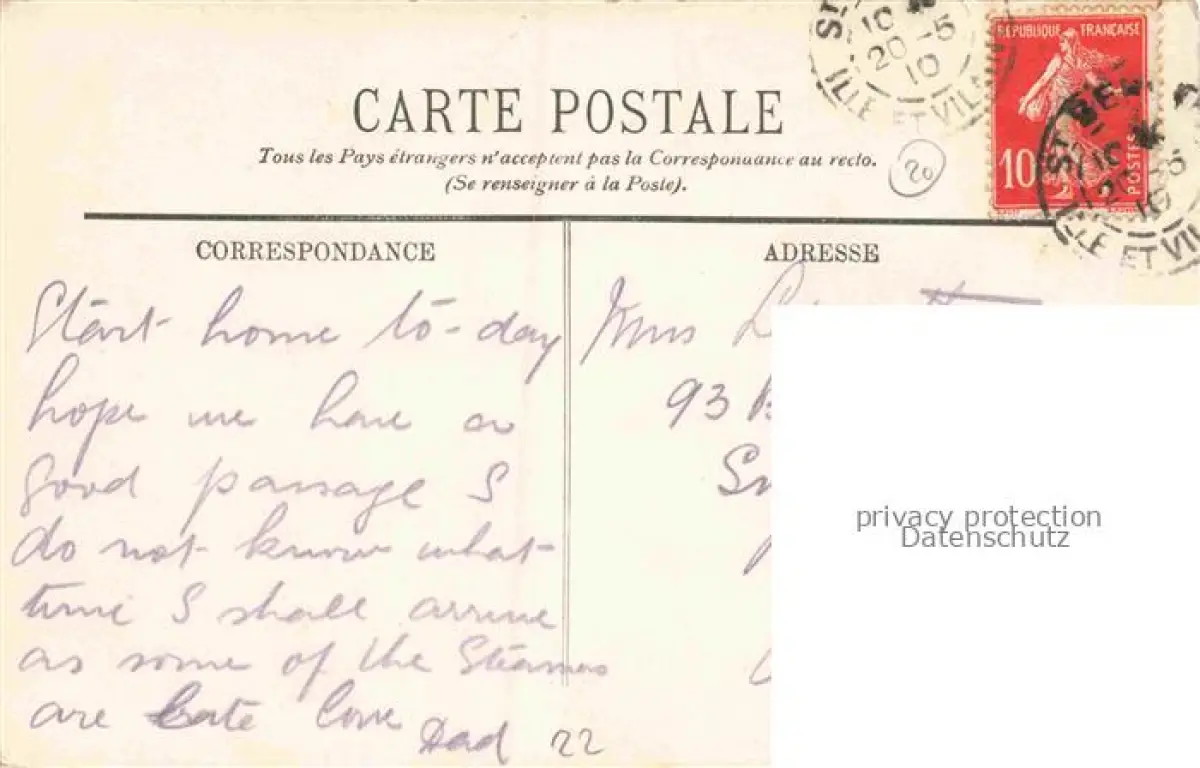 CARTE POSTALE
Tous les Pays étrangers n'acceptent pas la Correspondance au recto.
(Se renseigner à la Poste).
20
10
20-5
10
ILLE ET VILAINE
RÉPUBLIQUE FRANÇAISE
10
POSTES
10
ILLE ET VIL
CORRESPONDANCE
Start home to-day
hope we have a
good passage I
do not know what
time I shall arrive
as some of the Steamers
are late love
Dad 22
ADRESSE
93
privacy protection
Datenschutz